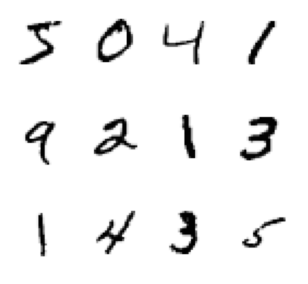 5 0 4 1
9 2 1 3
1 4 3 5